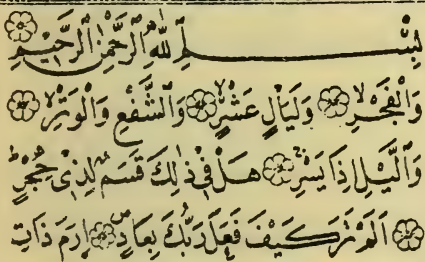 بِسْمِ ٱللَّهِ ٱلرَّحْمَٰنِ ٱلرَّحِيمِ
وَٱلْفَجْرِ ۙ وَلَيَالٍ عَشْرٍ ۙ وَٱلشَّفْعِ وَٱلْوَتْرِ ۙ
وَٱلَّيْلِ إِذَا يَسْرِ ۚ هَلْ فِى ذَٰلِكَ قَسَمٌ لِذِى حِجْرٍ ؕ
أَلَمْ تَرَ كَيْفَ فَعَلَ رَبُّكَ بِعَادٍ ۙ إِرَمَ ذَاتِ